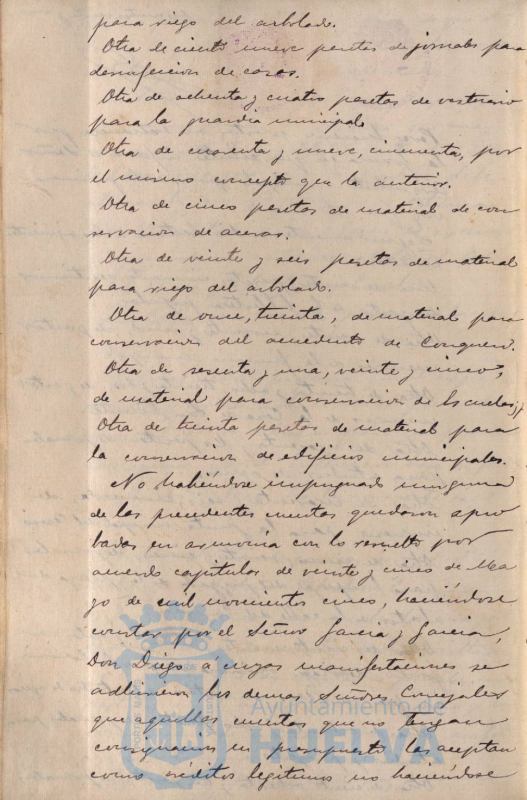 para riego del arbolado.
Otra de ciento nueve pesetas de jornales para
desinfeccion de casas.
Otra de ochenta y cuatro pesetas de vestuario
para la guardia municipal.
Otra de cuarenta y nueve, cincuenta, por
el mismo concepto que la anterior.
Otra de cinco pesetas de material de con
servacion de aceras.
Otra de veinte y seis pesetas de material
para riego del arbolado.
Otra de once, treinta, de material para
conservacion del acueducto de Conquero.
Otra de sesenta y una, veinte y cinco,
de material para conservacion de Escuelas, y
Otra de treinta pesetas de material para
la conservacion de edificios municipales.
No habiéndose impugnado ninguna
de las precedentes cuentas quedaron apro
badas en armonia con lo resuelto por
acuerdo capitular de veinte y cinco de Ma
yo de mil novecientos cinco, haciéndose
constar por el Señor Garcia y Garcia,
Don Diego a cuyas manifestaciones se
adhirieron los demas Señores Concejales
que aquellas cuentas que no tengan
consignacion en presupuesto las aceptan
como créditos legitimos no haciéndose
Ayuntamiento de
HUELVA